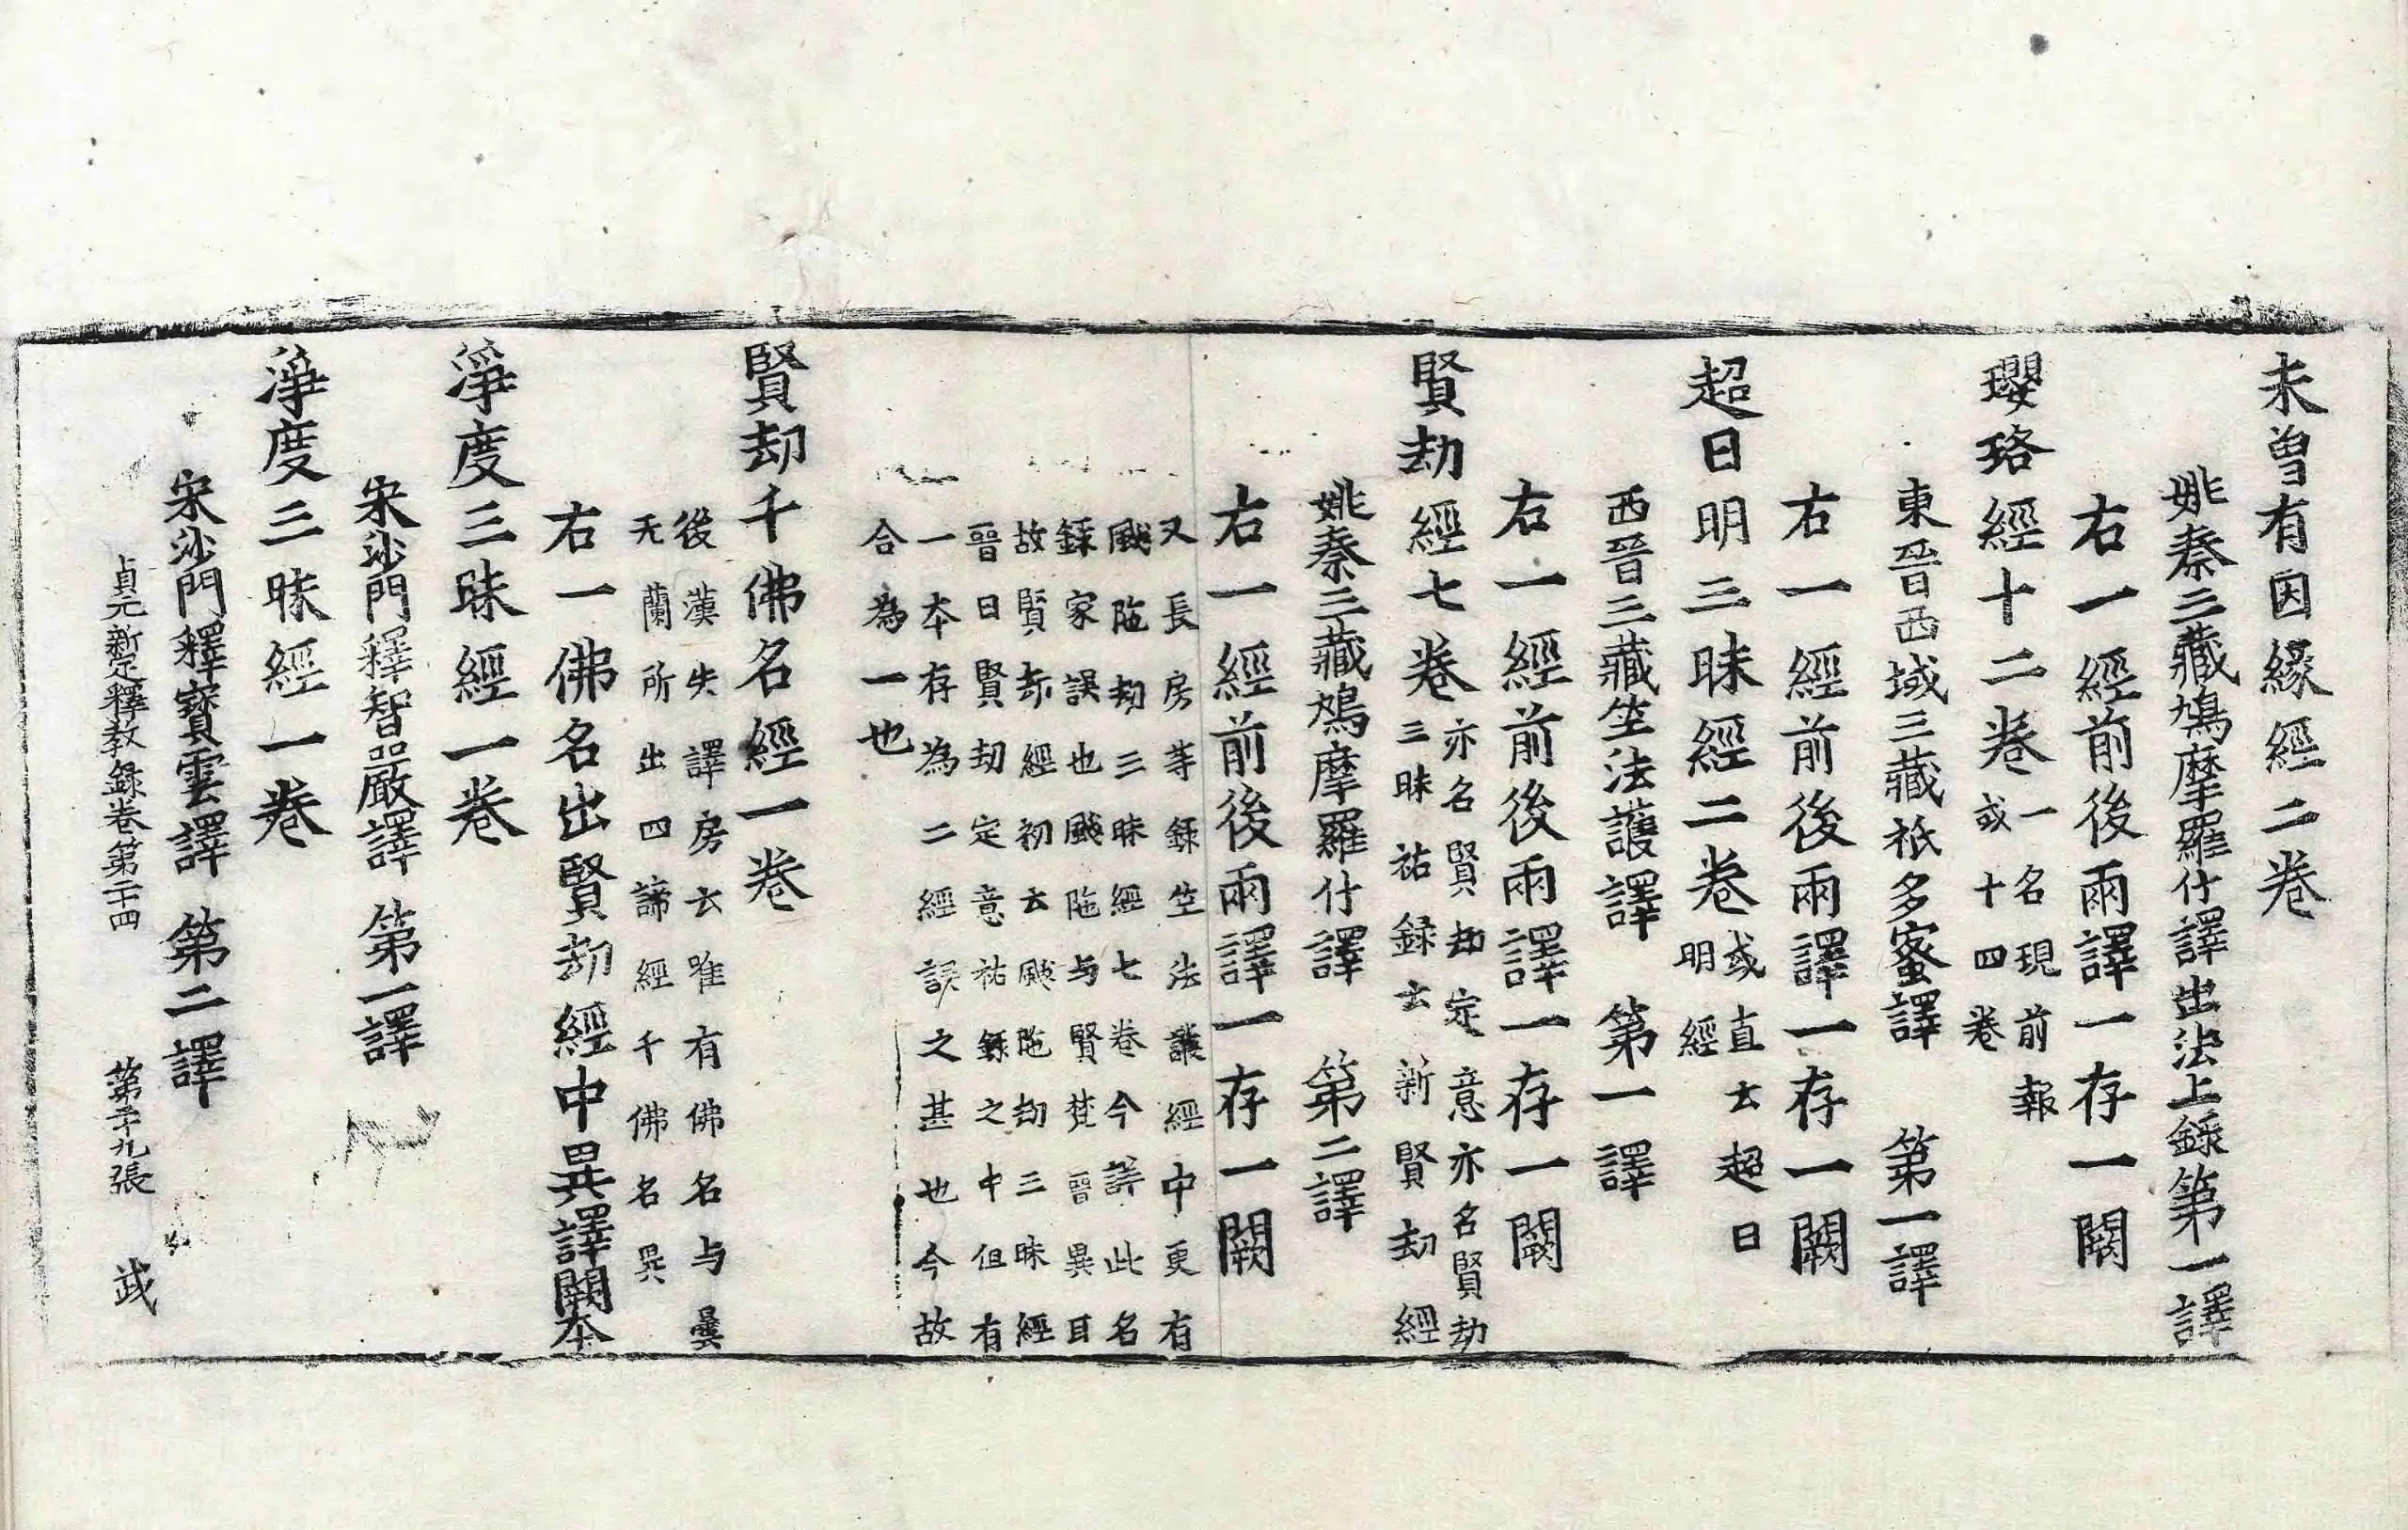 未曾有因緣經二卷
姚秦三藏鳩摩羅什譯出法上錄第一譯
右一經前後兩譯一存一闕
瓔珞經十二卷一名現前報
或十四卷
東晉西域三藏祇多蜜譯 第一譯
右一經前後兩譯一存一闕
超日明三昧經二卷或直云超日
明經
西晉三藏竺法護譯 第一譯
右一經前後兩譯一存一闕
賢劫經七卷亦名賢劫定意亦名賢劫
三昧祐録云新賢劫經
姚秦三藏鳩摩羅什譯 第二譯
右一經前後兩譯一存一闕
又長房等録竺法護經中更有
颰陁劫三昧經七卷今詳此名
録家誤也颰陁与賢梵晉異耳
故賢劫經初云颰陁劫三昧經
晉曰賢劫定意祐録之中但有
一本存為二經誤之甚也今故
合為一也
賢劫千佛名經一卷
後漢失譯房云唯有佛名与曇
无蘭所出四諦經千佛名異
右一佛名出賢劫經中異譯闕本
淨度三昧經一卷
宋沙門釋智嚴譯 第一譯
淨度三昧經一卷
宋沙門釋寶雲譯 第二譯
貞元新定釋教録卷第二十四 第二十九張 武